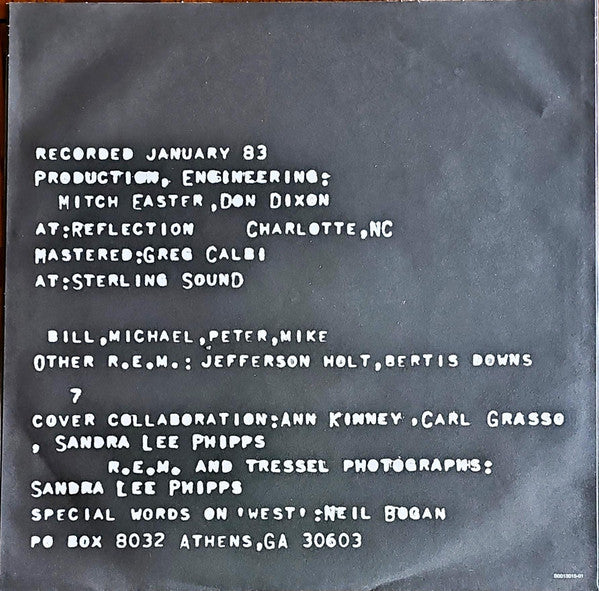 RECORDED JANUARY 83
PRODUCTION, ENGINEERING:
MITCH EASTER,DON DIXON
AT:REFLECTION CHARLOTTE,NC
MASTERED:GREG CALBI
AT:STERLING SOUND
BILL,MICHAEL,PETER,MIKE
OTHER R.E.M.: JEFFERSON HOLT,BERTIS DOWNS
7
COVER COLLABORATION:ANN KINNEY ,CARL GRASSO
, SANDRA LEE PHIPPS
R.E.M. AND TRESSEL PHOTOGRAPHS:
SANDRA LEE PHIPPS
SPECIAL WORDS ON 'WEST' :NEIL BOGAN
PO BOX 8032 ATHENS,GA 30603